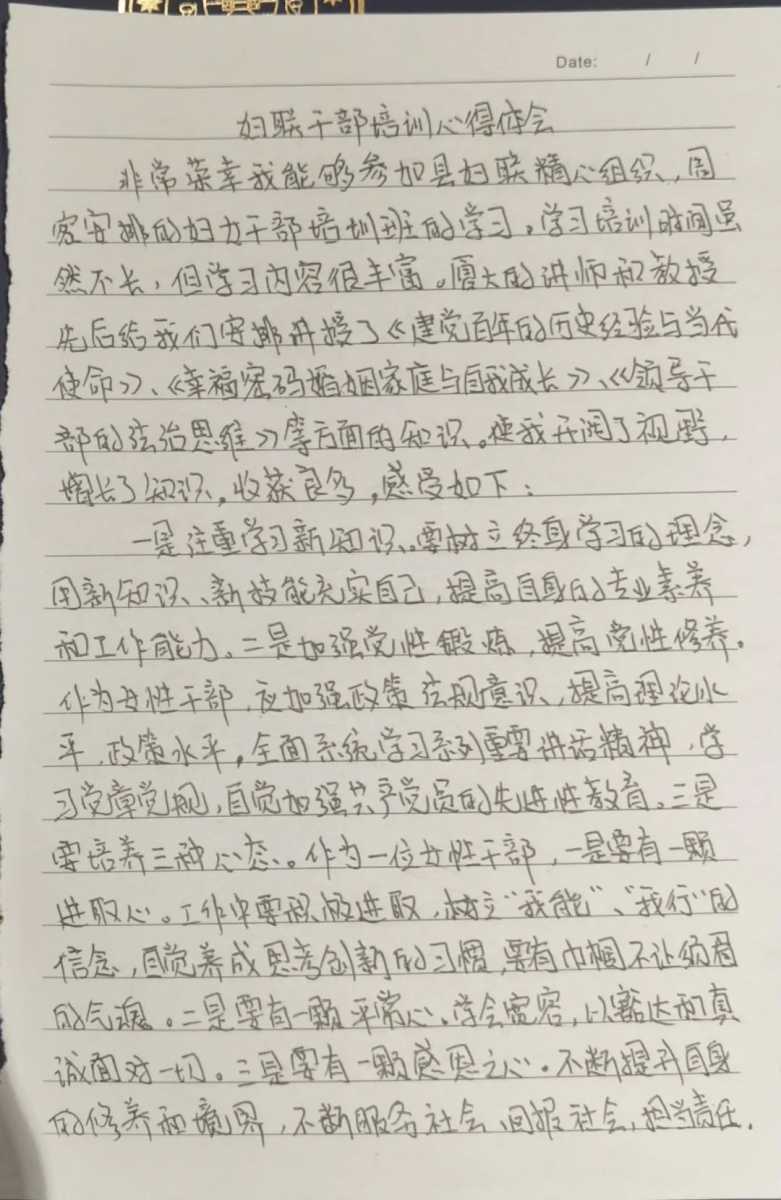 Date: / /
妇联干部培训心得体会
非常荣幸我能够参加县妇联精心组织,周
密安排的妇女干部培训班的学习。学习培训时间虽
然不长,但学习内容很丰富。厦大的讲师和教授
先后给我们安排讲授了《建党百年的历史经验与当代
使命》、《幸福密码婚姻家庭与自我成长》、《领导干
部的法治思维》等方面的知识。使我开阔了视野,
增长了知识,收获良多,感受如下:
一是注重学习新知识。要树立终身学习的理念,
用新知识、新技能充实自己,提高自身的专业素养
和工作能力。二是加强党性锻炼,提高党性修养。
作为女性干部,应加强政策法规意识、提高理论水
平,政策水平。全面系统学习系列重要讲话精神,学
习党章党规,自觉加强共产党员的先进性教育。三是
要培养三种心态。作为一位女性干部,一是要有一颗
进取心。工作中要积极进取,树立“我能”、“我行”的
信念,自觉养成思考创新的习惯,要有巾帼不让须眉
的气魄。二是要有一颗平常心。学会宽容,以豁达和真
诚面对一切。三是要有一颗感恩之心。不断提升自身
的修养和境界,不断服务社会、回报社会,担当责任。